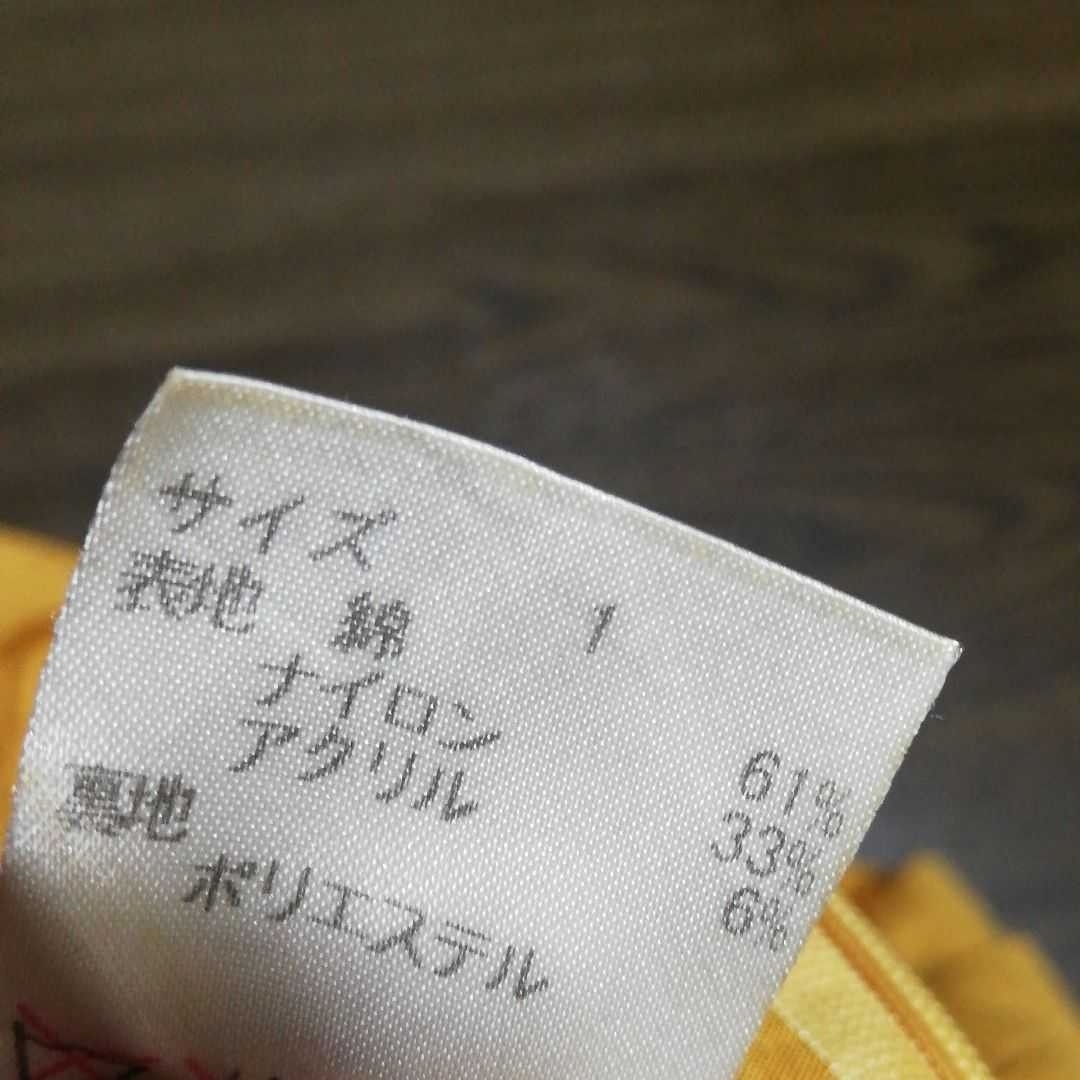 サイズ 1
表地 綿 61%
ナイロン 33%
アクリル 6%
裏地
ポリエステル